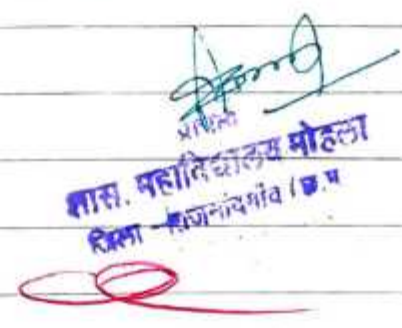 प्राचार्य
शास. महाविद्यालय मोहला
जिला - राजनांदगांव (छ.ग